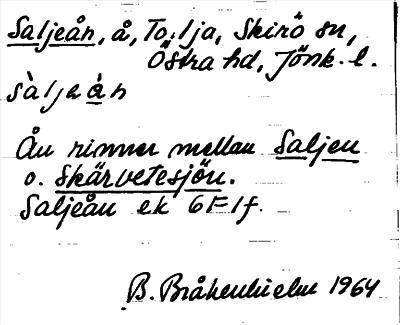 Saljeån, å, Tolja, Skirö sn,
Östra hd, Jönk. l.
sàljeán
Ån rinner mellan Saljen
o. Skärvetesjön.
Saljeån ek 6F1f.
B. Bråkenhielm 1964